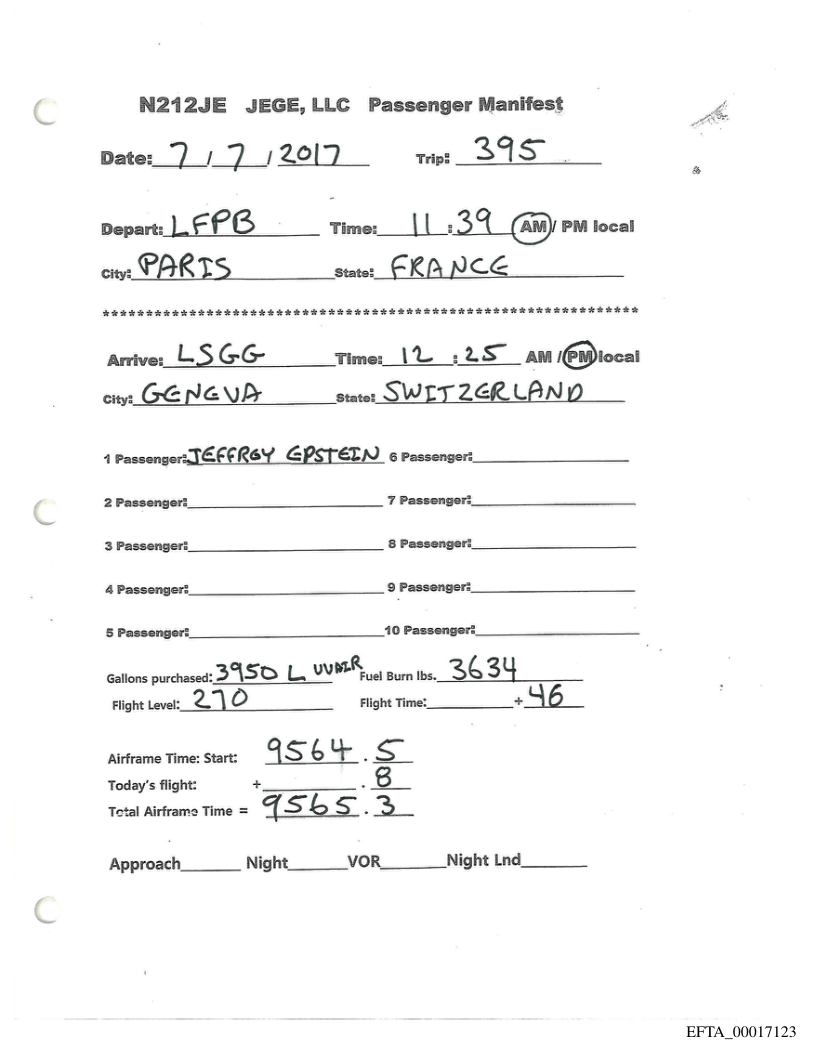 N212JE JEGE, LLC Passenger Manifest
Date: 7 / 7 / 2017 Trip: 395
Depart: LFPB Time: 11 : 39 AM / PM local
City: PARIS State: FRANCE
*************************************************************
Arrive: LSGG Time: 12 : 25 AM / PM local
City: GENEVA State: SWITZERLAND
1 Passenger: JEFFREY EPSTEIN 6 Passenger:
2 Passenger: 7 Passenger:
3 Passenger: 8 Passenger:
4 Passenger: 9 Passenger:
5 Passenger: 10 Passenger:
Gallons purchased: 3950 L UVAIR Fuel Burn lbs. 3634
Flight Level: 270 Flight Time: + 46
Airframe Time: Start: 9564 . 5
Today's flight: + . 8
Total Airframe Time = 9565 . 3
Approach Night VOR Night Lnd
EFTA_00017123